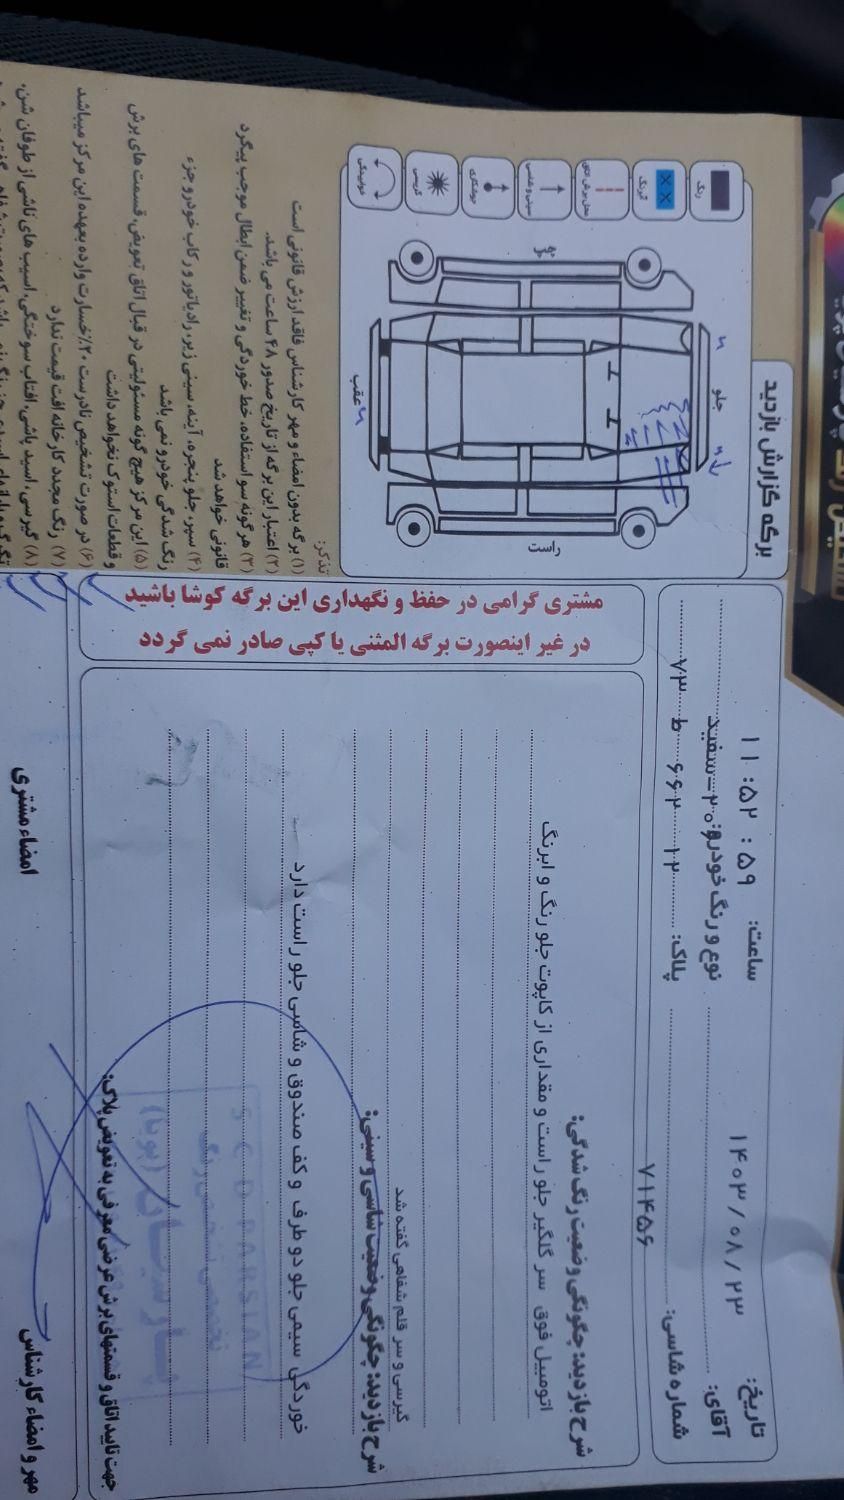 برگه گزارش بازدید
تاریخ: ۱۴۰۳/۰۸/۲۳
ساعت: ۱۱:۵۲:۵۹
آقای:
نوع و رنگ خودرو: ۲۰ - سفید
شماره شاسی: ۷۱۴۵۶
پلاک: ۱۲ ۶۶۲ ط ۷۳
رنگ
محل برش اتاق
سینی و شاسی
جوشکاری
گریسی
خوابیدگی
جلو
عقب
راست
شرح بازدید: چگونگی وضعیت رنگ شدگی:
اتومبیل فوق سر گلگیر جلو راست و مقداری از کاپوت جلو رنگ و ابرنگ
گیرسی و سر قلم شفاهی گفته شد
شرح بازدید: چگونگی وضعیت شاسی و سینی:
خوردگی سیمی جلو دو طرف و کف صندوق و شاسی جلو راست دارد
جهت تایید اتاق و قسمتهای برش عرضی معرفی به تعویض پلاک:
S C D PARSIAN
تشخیص رنگ
پارسیان (پویا)
مهر و امضاء کارشناس
امضاء مشتری
مشتری گرامی در حفظ و نگهداری این برگه کوشا باشید
در غیر اینصورت برگه المثنی یا کپی صادر نمی گردد
تذکر:
(۱) برگه بدون امضاء و مهر کارشناس فاقد ارزش قانونی است
(۲) اعتبار این برگه از تاریخ صدور ۴۸ ساعت می باشد.
(۳) هرگونه سو استفاده، خط خوردگی و تغییر ضمن ابطال موجب پیگرد
قانونی خواهد شد
(۴) سپر، جلو پنجره، آینه، سینی زیر، رادیاتور و رکاب خودرو جزء
رنگ شدگی خودرو نمی باشد
(۵) این مرکز هیچ گونه مسئولیتی در قبال اتاق تعویض، قسمت های برش
و قطعات استوک نخواهد داشت
(۶) در صورت تشخیص نادرست ۲۰٪ خسارت وارده بعهده این مرکز میباشد
(۷) رنگ مجدد کارخانه افت قیمت ندارد
(۸) گیرسی، اسید پاشی، افتاب سوختگی، اسیب های ناشی از طوفان شن،